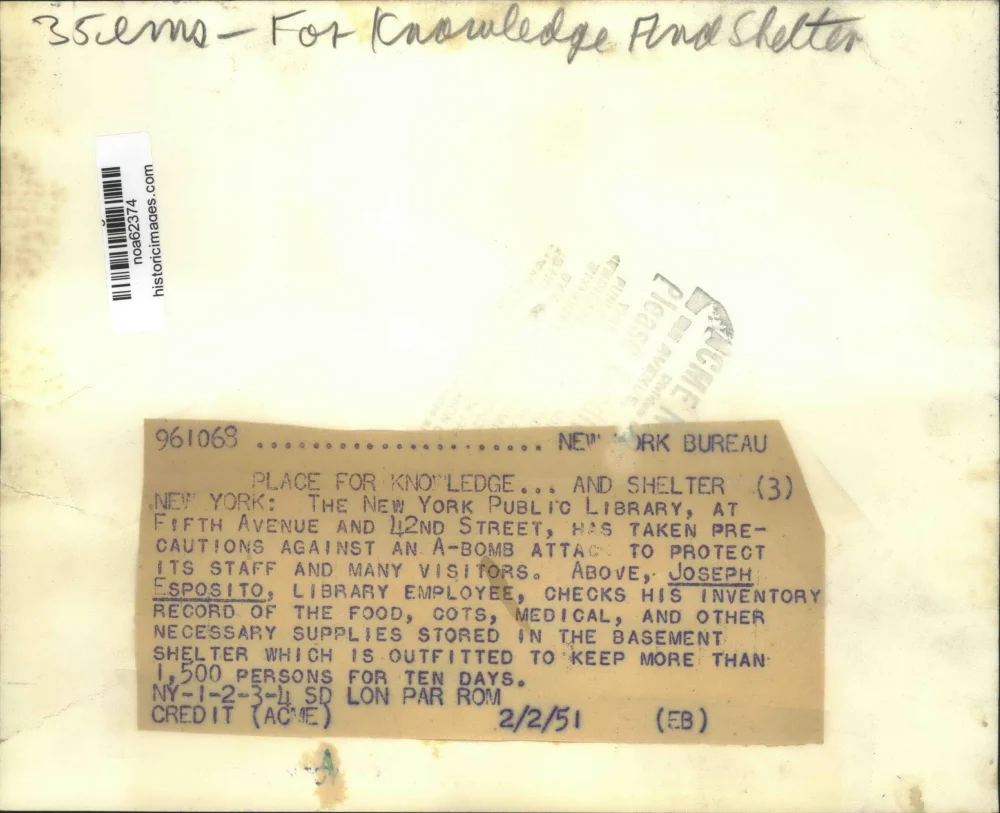 35 ems - For Knowledge And Shelter
noa62374
historicimages.com
Please
ACME
AVENUE
961068 ...................... NEW YORK BUREAU
PLACE FOR KNOWLEDGE... AND SHELTER (3)
NEW YORK: THE NEW YORK PUBLIC LIBRARY, AT
FIFTH AVENUE AND 42ND STREET, HAS TAKEN PRE-
CAUTIONS AGAINST AN A-BOMB ATTACK TO PROTECT
ITS STAFF AND MANY VISITORS. ABOVE, JOSEPH
ESPOSITO, LIBRARY EMPLOYEE, CHECKS HIS INVENTORY
RECORD OF THE FOOD, COTS, MEDICAL, AND OTHER
NECESSARY SUPPLIES STORED IN THE BASEMENT
SHELTER WHICH IS OUTFITTED TO KEEP MORE THAN
1,500 PERSONS FOR TEN DAYS.
NY-1-2-3-4 SD LON PAR ROM
CREDIT (ACME) 2/2/51 (EB)